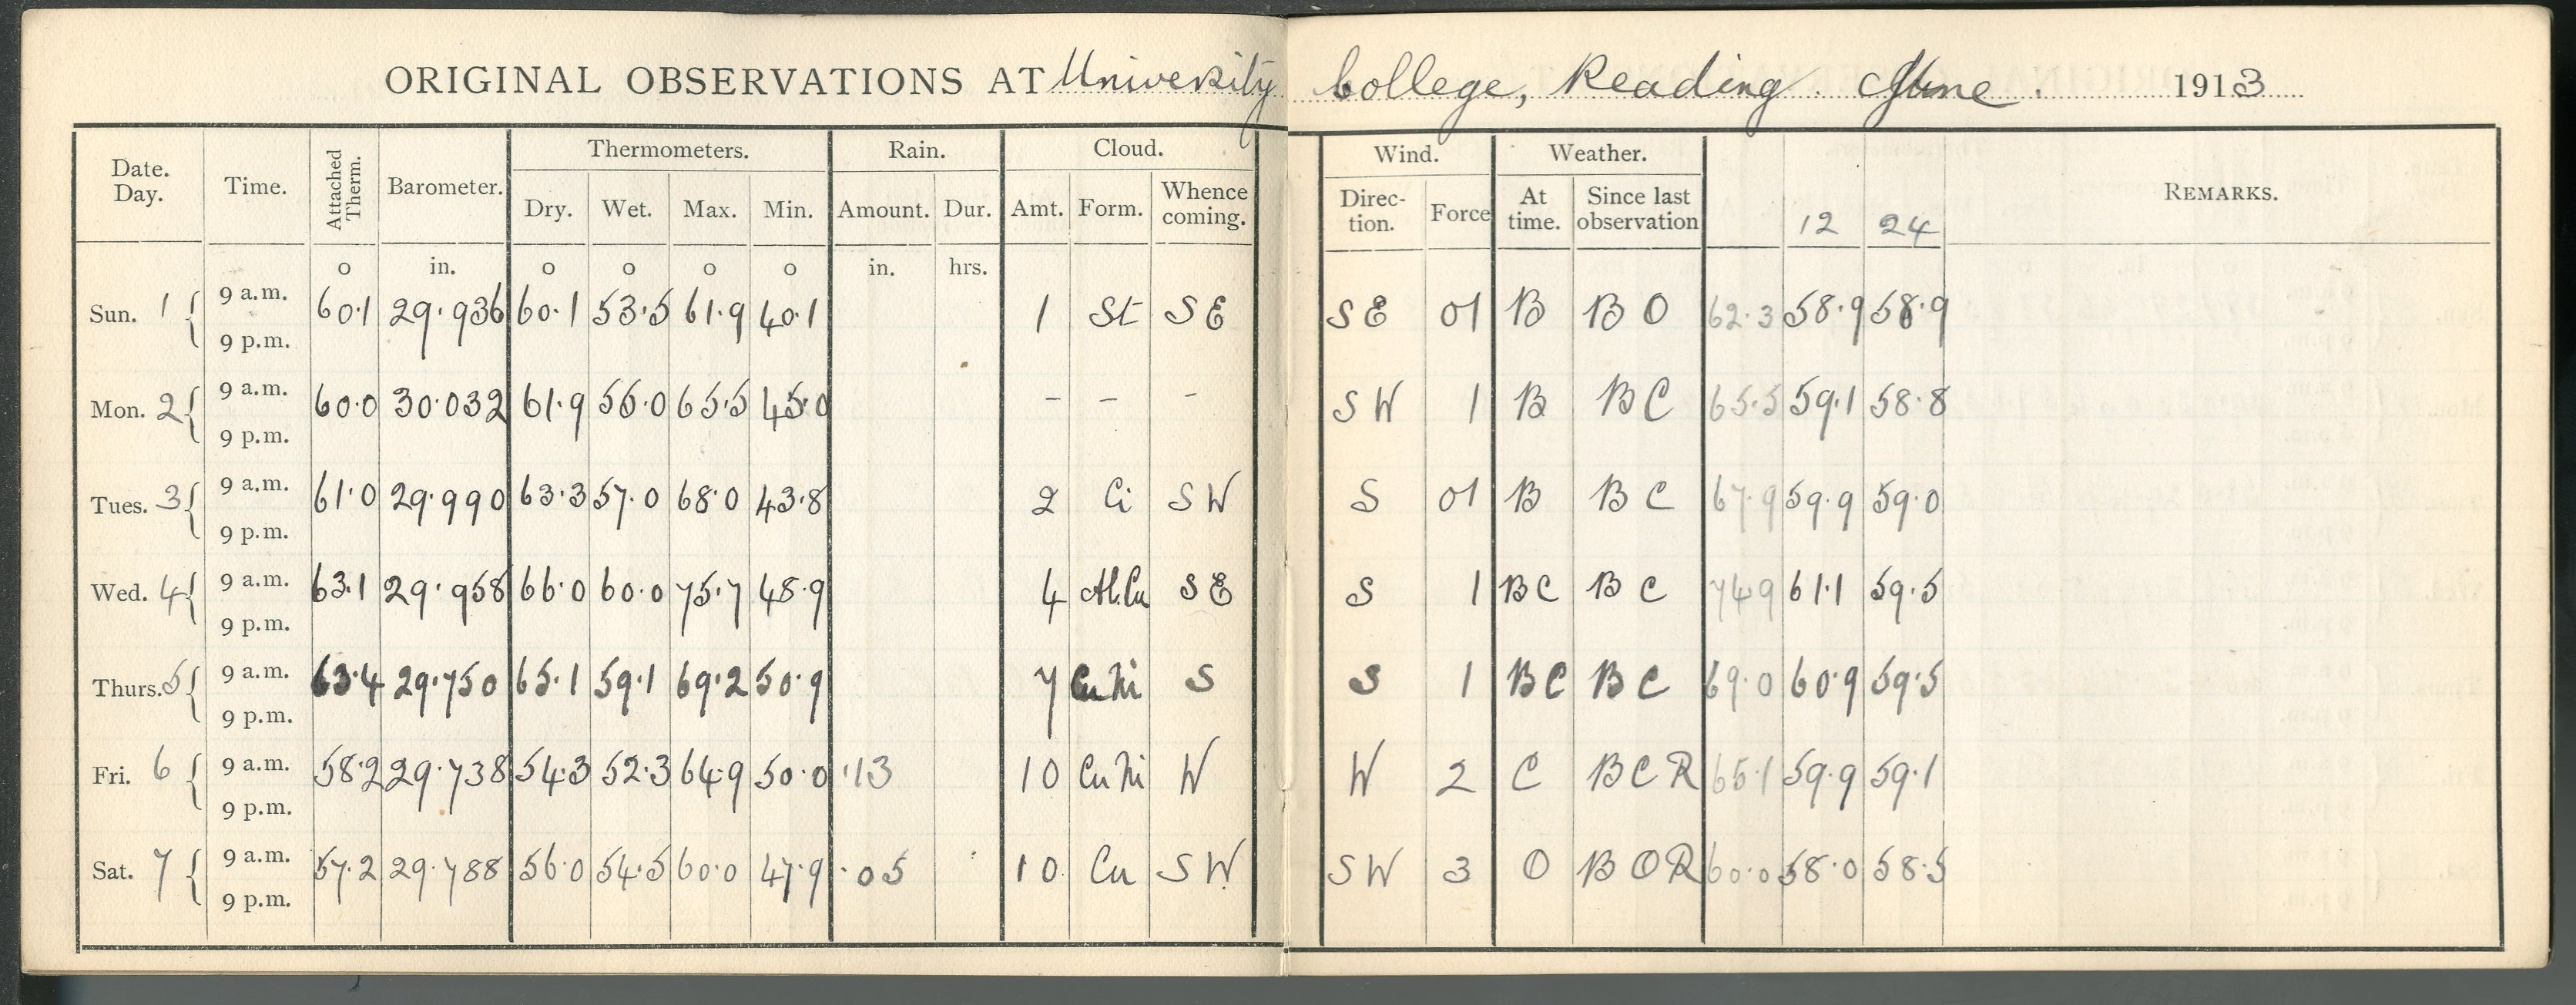 ORIGINAL OBSERVATIONS AT University College, Reading. June. 1913
Date. Day. Time. Attached Therm. Barometer. Thermometers. Rain. Cloud. Wind. Weather. REMARKS.
Dry. Wet. Max. Min. Amount. Dur. Amt. Form. Whence coming. Direc-tion. Force At time. Since last observation 12 24
o in. o o o o in. hrs.
Sun. 1 { 9 a.m. 60.1 29.936 60.1 53.5 61.9 40.1 1 St SE SE 01 B BO 62.3 58.9 58.9
9 p.m.
Mon. 2 { 9 a.m. 60.0 30.032 61.9 55.0 65.5 45.0 – – – SW 1 B BC 65.5 59.1 58.8
9 p.m.
Tues. 3 { 9 a.m. 61.0 29.990 63.3 57.0 68.0 43.8 2 Ci SW S 01 B BC 67.9 59.9 59.0
9 p.m.
Wed. 4 { 9 a.m. 63.1 29.958 66.0 60.0 75.7 48.9 4 Al.Cu SE S 1 BC BC 74.9 61.1 59.5
9 p.m.
Thurs. 5 { 9 a.m. 63.4 29.750 65.1 59.1 69.2 50.9 7 CuNi S S 1 BC BC 69.0 60.9 59.5
9 p.m.
Fri. 6 { 9 a.m. 58.2 29.738 54.3 52.3 64.9 50.0 .13 10 CuNi W W 2 C BCR 65.1 59.9 59.1
9 p.m.
Sat. 7 { 9 a.m. 57.2 29.788 56.0 54.5 60.0 47.9 .05 10 Cu SW SW 3 O BOR 60.0 58.0 58.5
9 p.m.